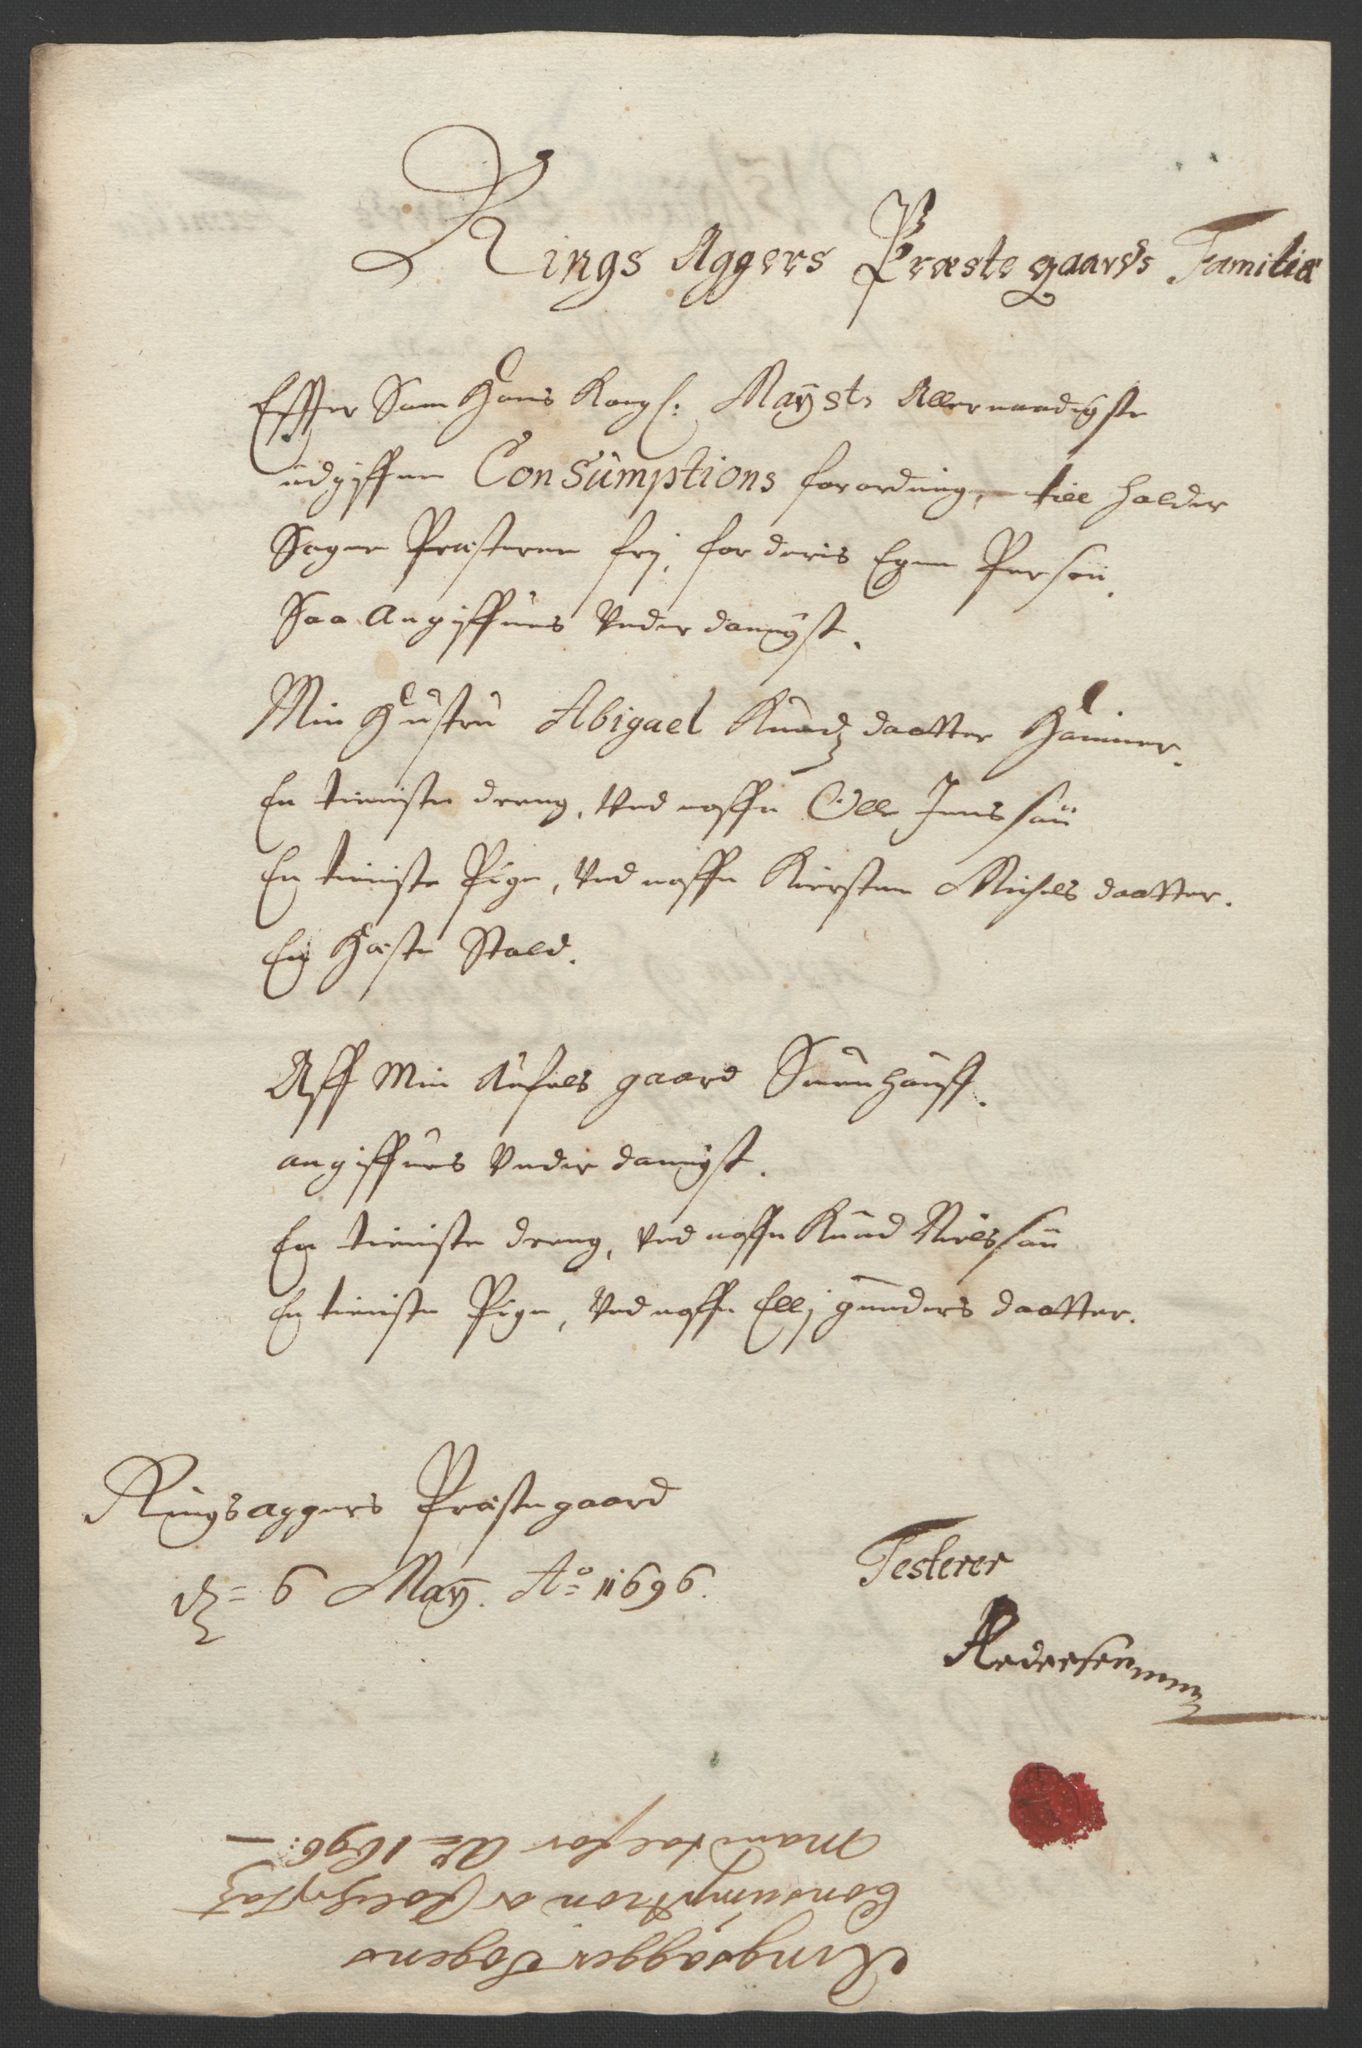 Rings Aggers Præstegaards Familiæ
Effter Som Hans Kongl: Mayst: Allernaadigste
udgiffne Consumptions forordning, till holder
Sogne Præsterne frj, for deris Egen Person,
Saa Angiffues Vnderdanigst.
Min Hustru Abigael Knudz daatter Hammer.
En tieniste dreng, Ved naffn Olle Jenssøn
En tieniste Pige, Ved naffn Kiersten Michels daatter.
En Hæste Stald.
Aff Min Aufels gaard Suenhaug.
angiffues Vnderdanigst.
En tieniste dreng, Ved naffn Knud Nielssøn
En tieniste Pige, Ved naffn Ellj gunders daatter.
Ringsaggers Præstegaard
d = 6 May. Ao 1696.
Testerer
APedersen mp
Ringsagger Sogens
Consumption o Folcheskatz
Mandtal for Ao 1696: